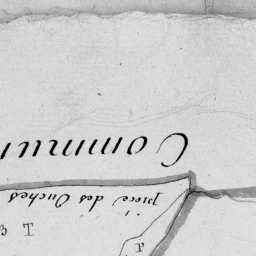 Commun
piece des Ouches